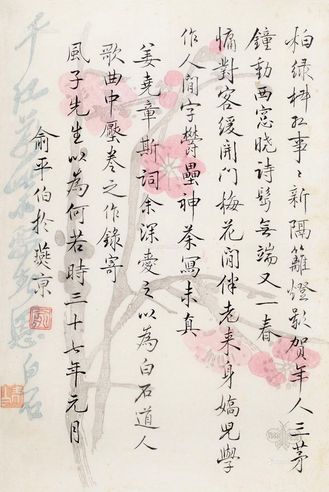 柏緑椒紅事〻新隔籬燈影賀年人三茅
鐘動西窓曉詩鬢無端又一春
慵對客緩開門梅花閒伴老来身嬌兒學
作人間字鬱壘神荼寫未真
姜堯章斯詞余深愛之以為白石道人
歌曲中壓卷之作錄寄
風子先生以為何若時三十七年元月
俞平伯於燕京
白石